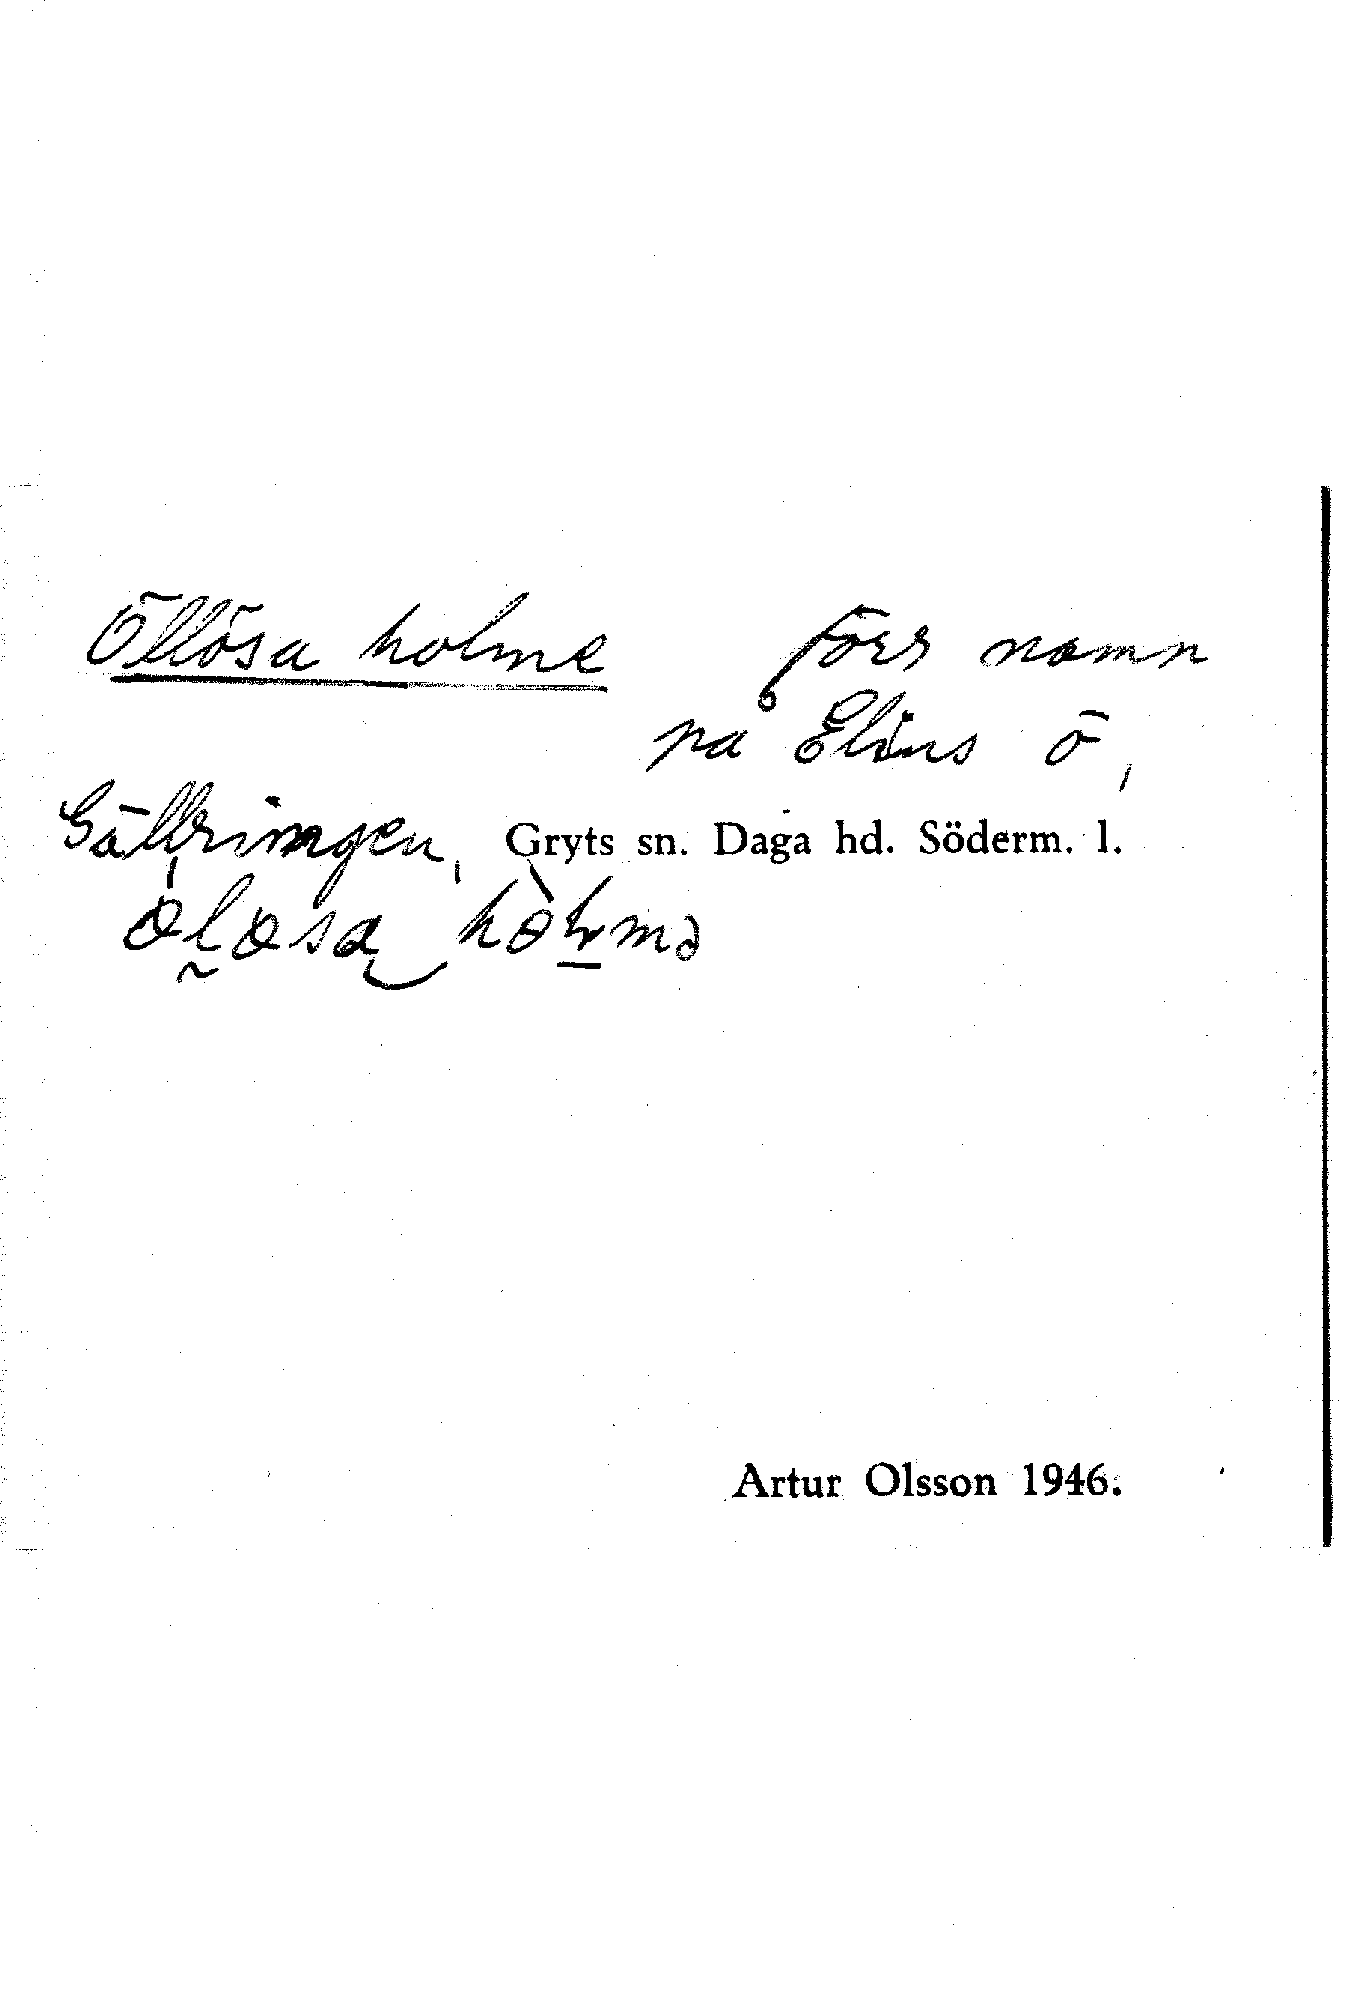 Öllösa holme förr namn
på Elins ö,
Gällringen, Gryts sn. Daga hd. Söderm. l.
Artur Olsson 1946.